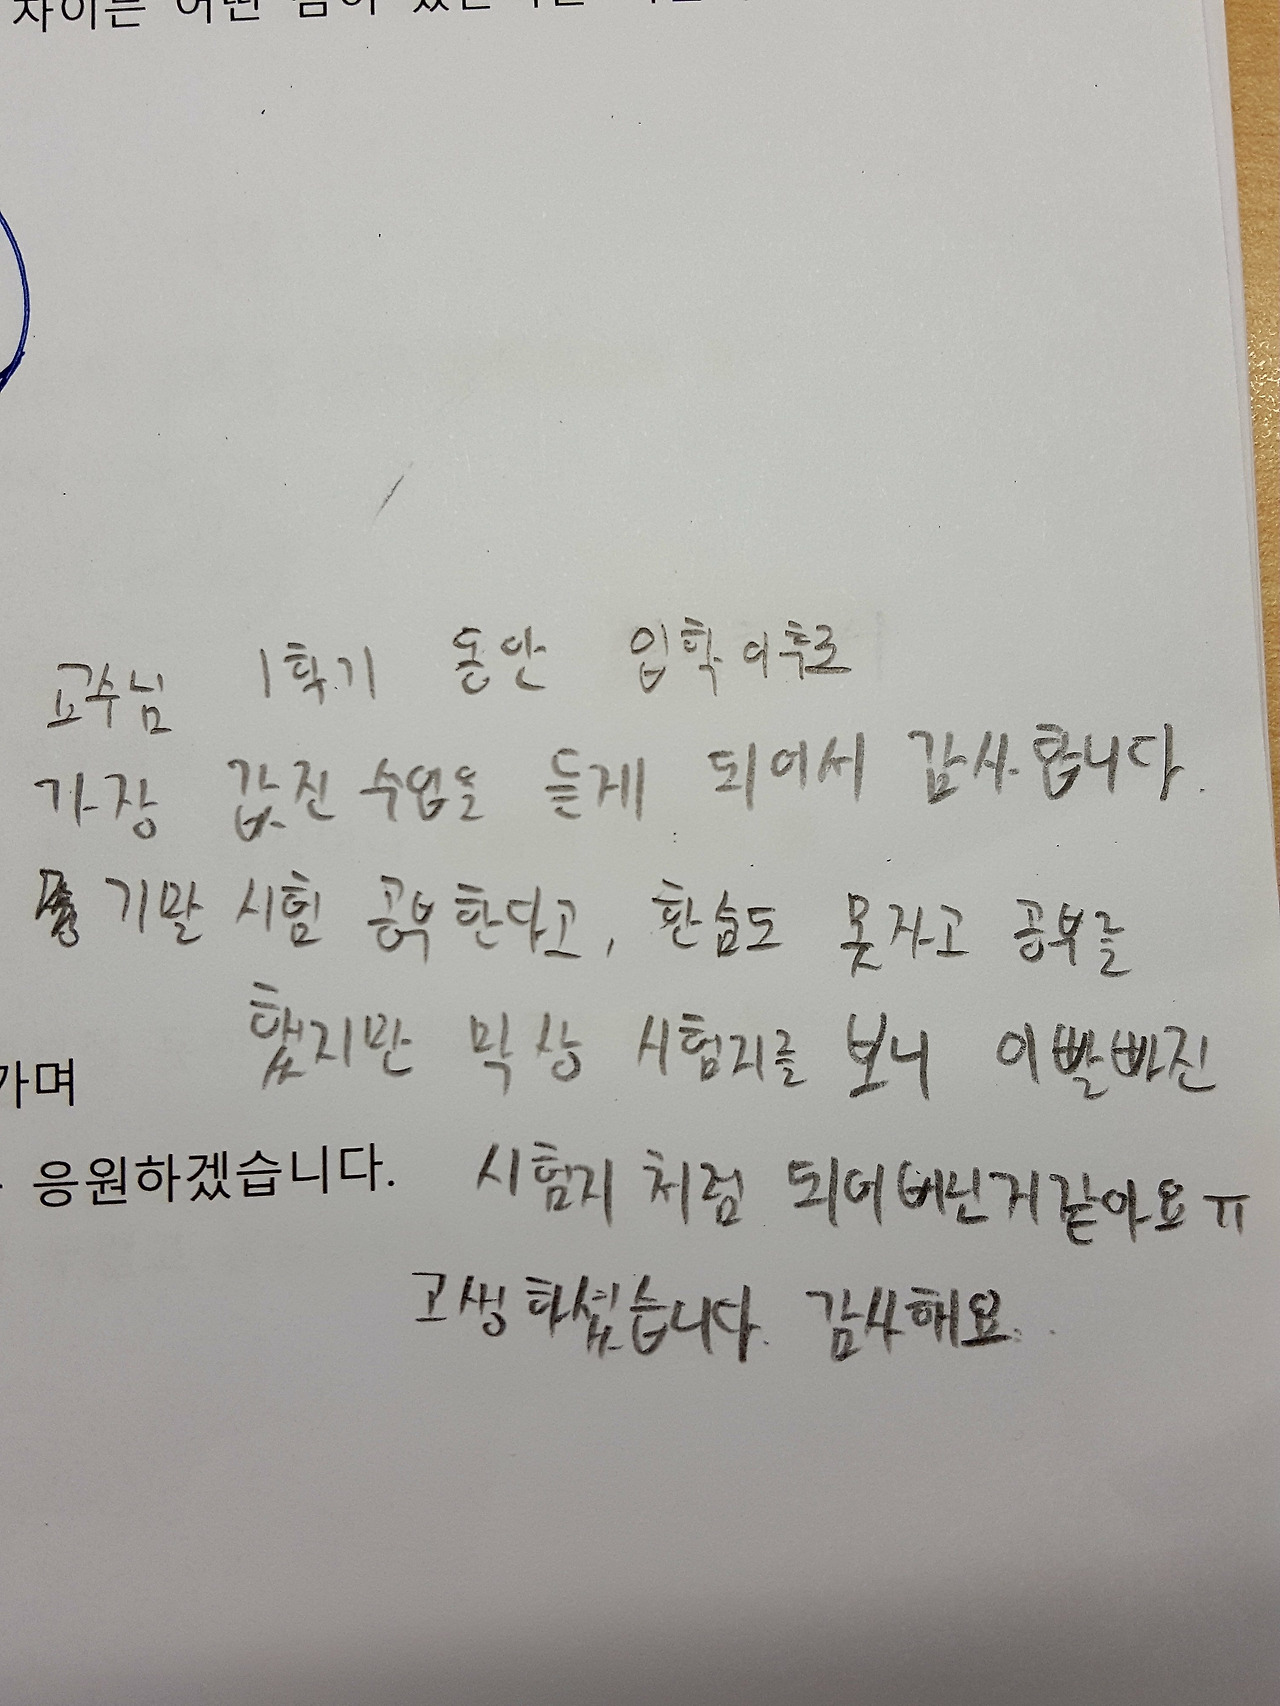 차이는 어떤
교수님 1학기 동안 입학이후로
가장 값진 수업을 듣게 되어서 감사합니다.
기말 시험 공부한다고, 한숨도 못자고 공부를
했지만 막상 시험지를 보니 이빨빠진
가며
응원하겠습니다.
시험지 처럼 되어버린거같아요ㅠ
고생하셨습니다. 감사해요.